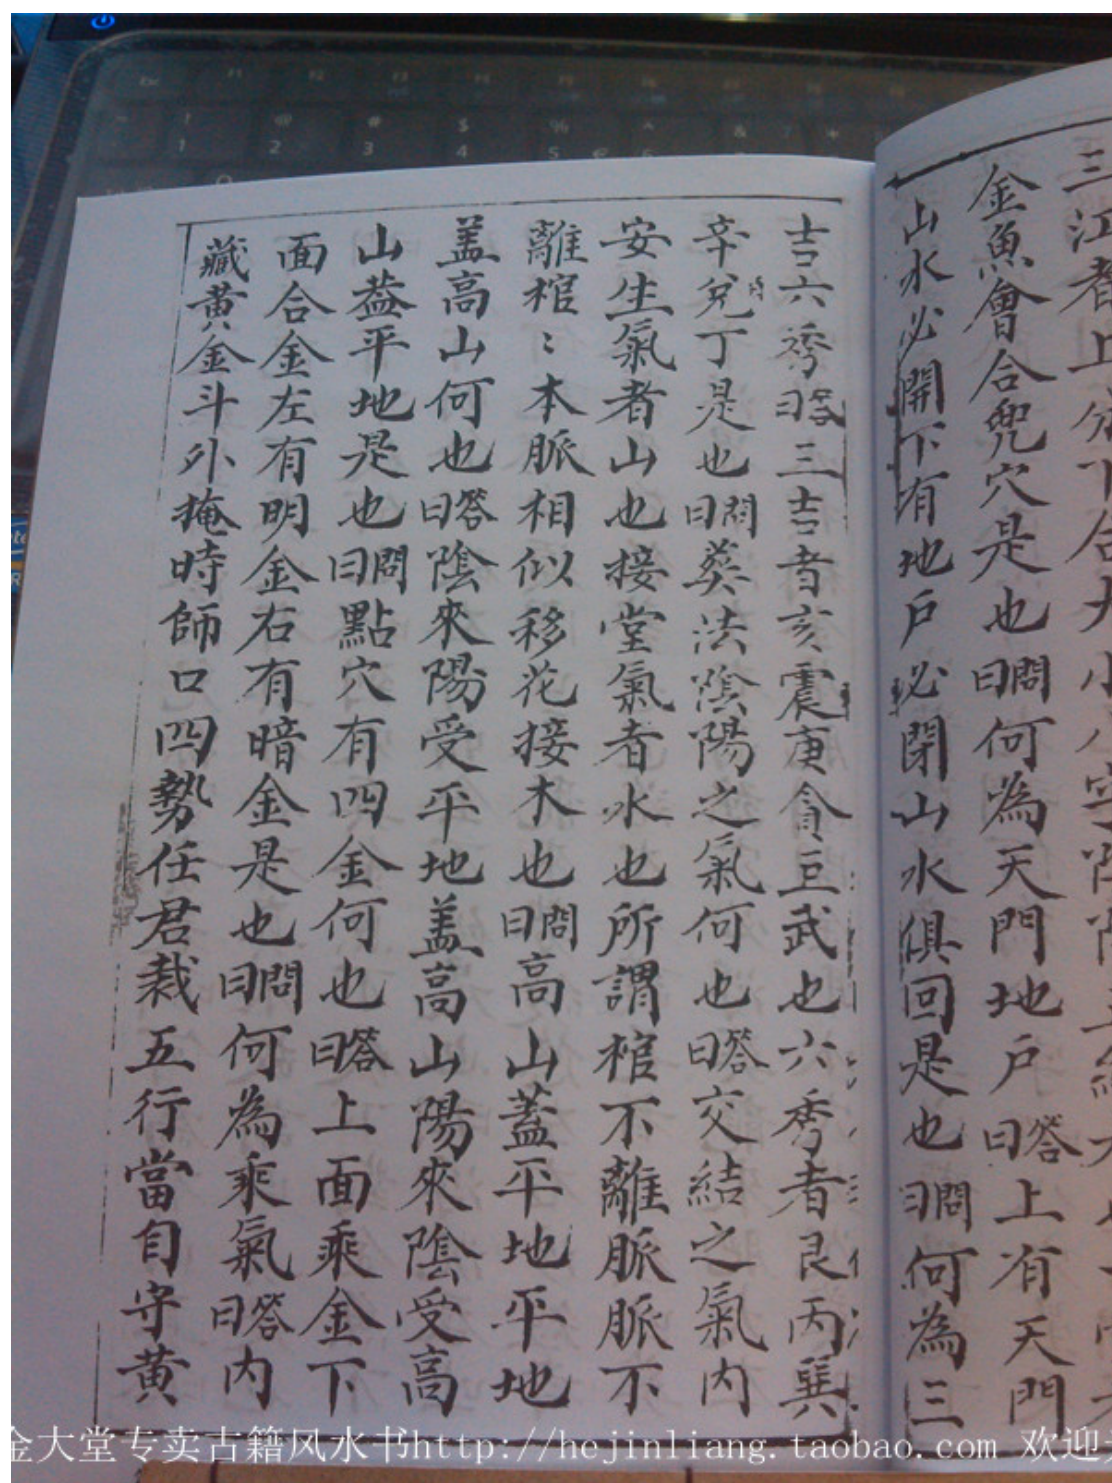 金魚會合兜穴是也問曰何為天門地戶答曰上有天門
山水必開下有地戶必閉山水俱回是也問曰何為三
吉六秀答曰三吉者亥震庚貪巨武也六秀者艮丙巽
辛兌丁是也問曰葬法陰陽之氣何也答曰交結之氣內
安生氣者山也接堂氣者水也所謂棺不離脈脈不
離棺〻本脈相似移花接木也問曰高山蓋平地平地
盖高山何也答曰陰來陽受平地盖高山陽來陰受高
山葢平地是也問曰點穴有四金何也答曰上面乘金下
面合金左有明金右有暗金是也問曰何為乘氣答曰內
藏黃金斗外掩時師口四勢任君裁五行當自守黃
金大堂专卖古籍风水书http://hejinliang.taobao.com 欢迎